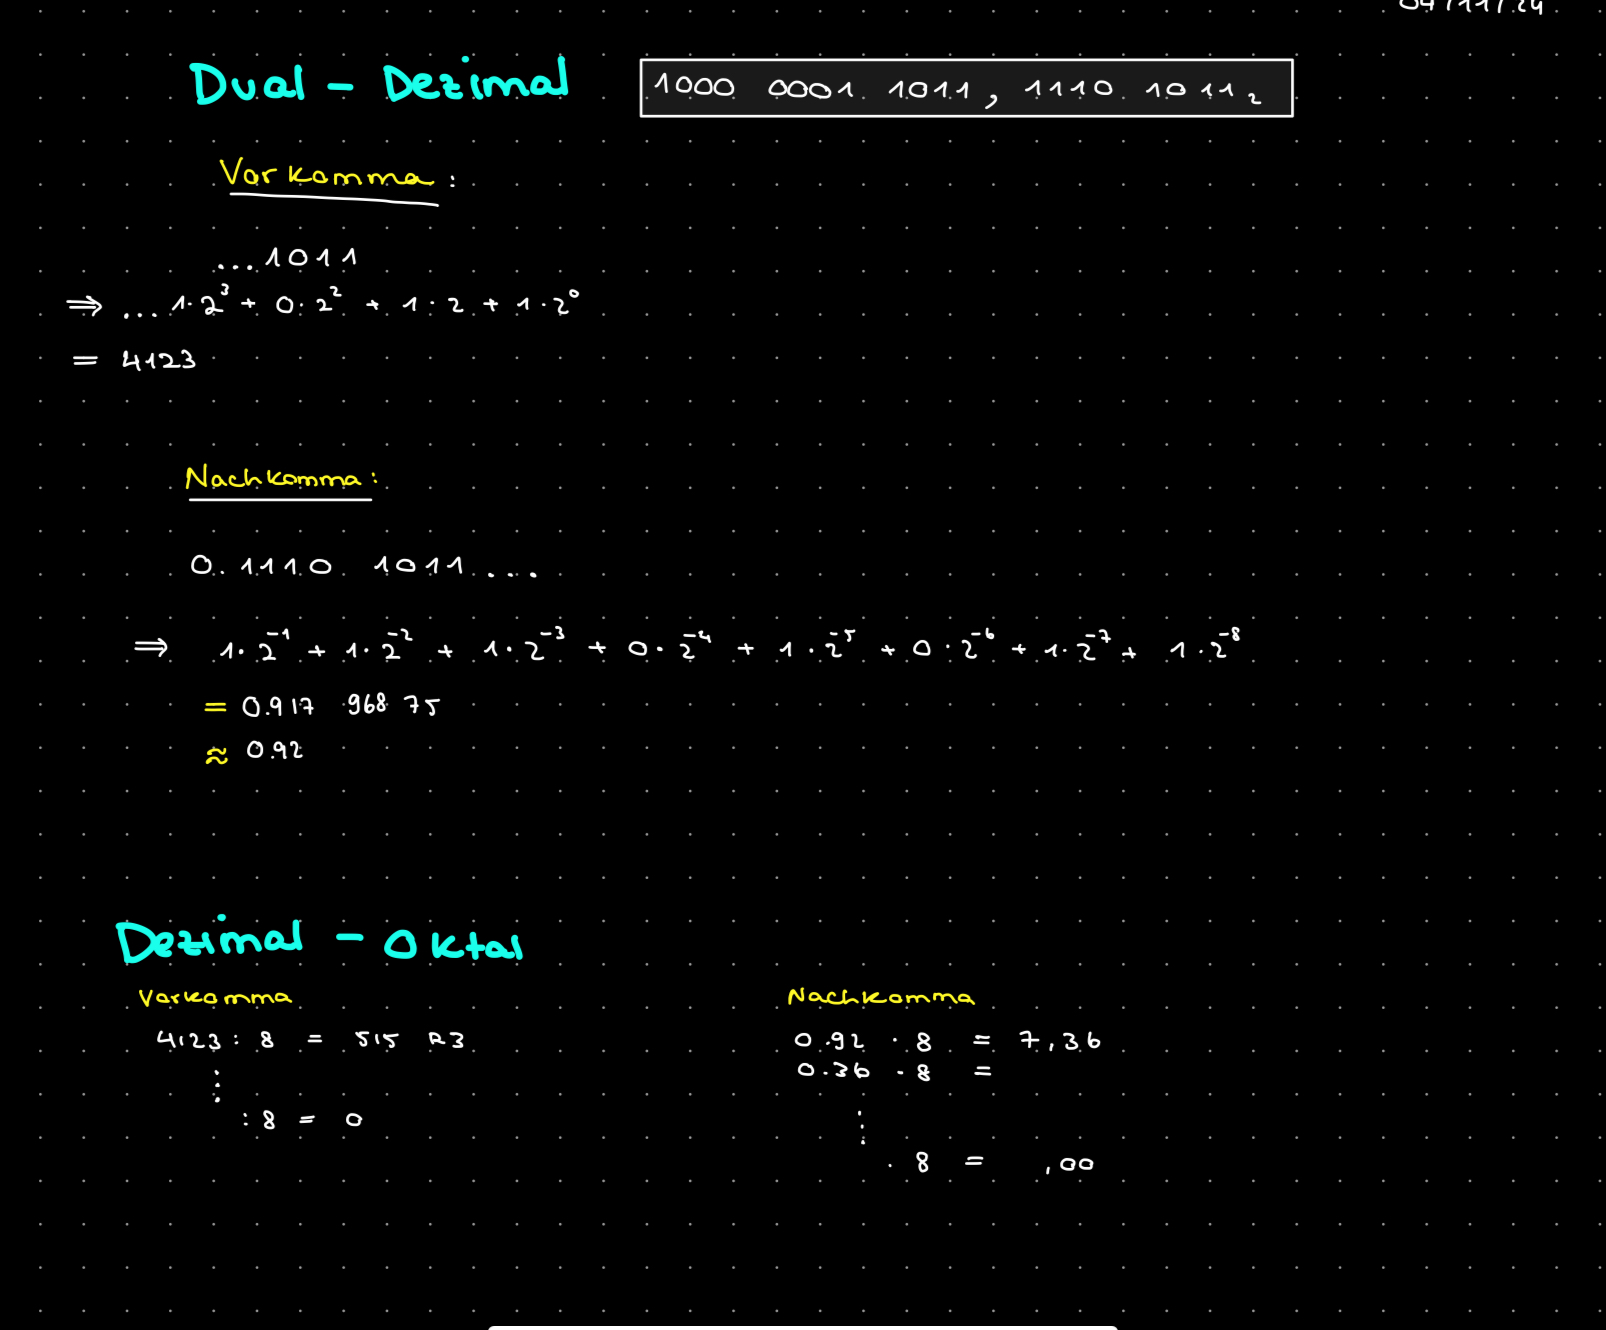 04/11/24
Dual - Dezimal 1000 0001 1011, 1110 1011₂
Vorkomma:
...1011
⇒ ...1·2³ + 0·2² + 1·2 + 1·2⁰
= 4123
Nachkomma:
0.1110 1011...
⇒ 1·2⁻¹ + 1·2⁻² + 1·2⁻³ + 0·2⁻⁴ + 1·2⁻⁵ + 0·2⁻⁶ + 1·2⁻⁷ + 1·2⁻⁸
= 0.917 968 75
≈ 0.92
Dezimal - Oktal
Vorkomma
4123 : 8 = 515 R3
⋮
: 8 = 0
Nachkomma
0.92 · 8 = 7,36
0.36 · 8 =
⋮
· 8 = ,00